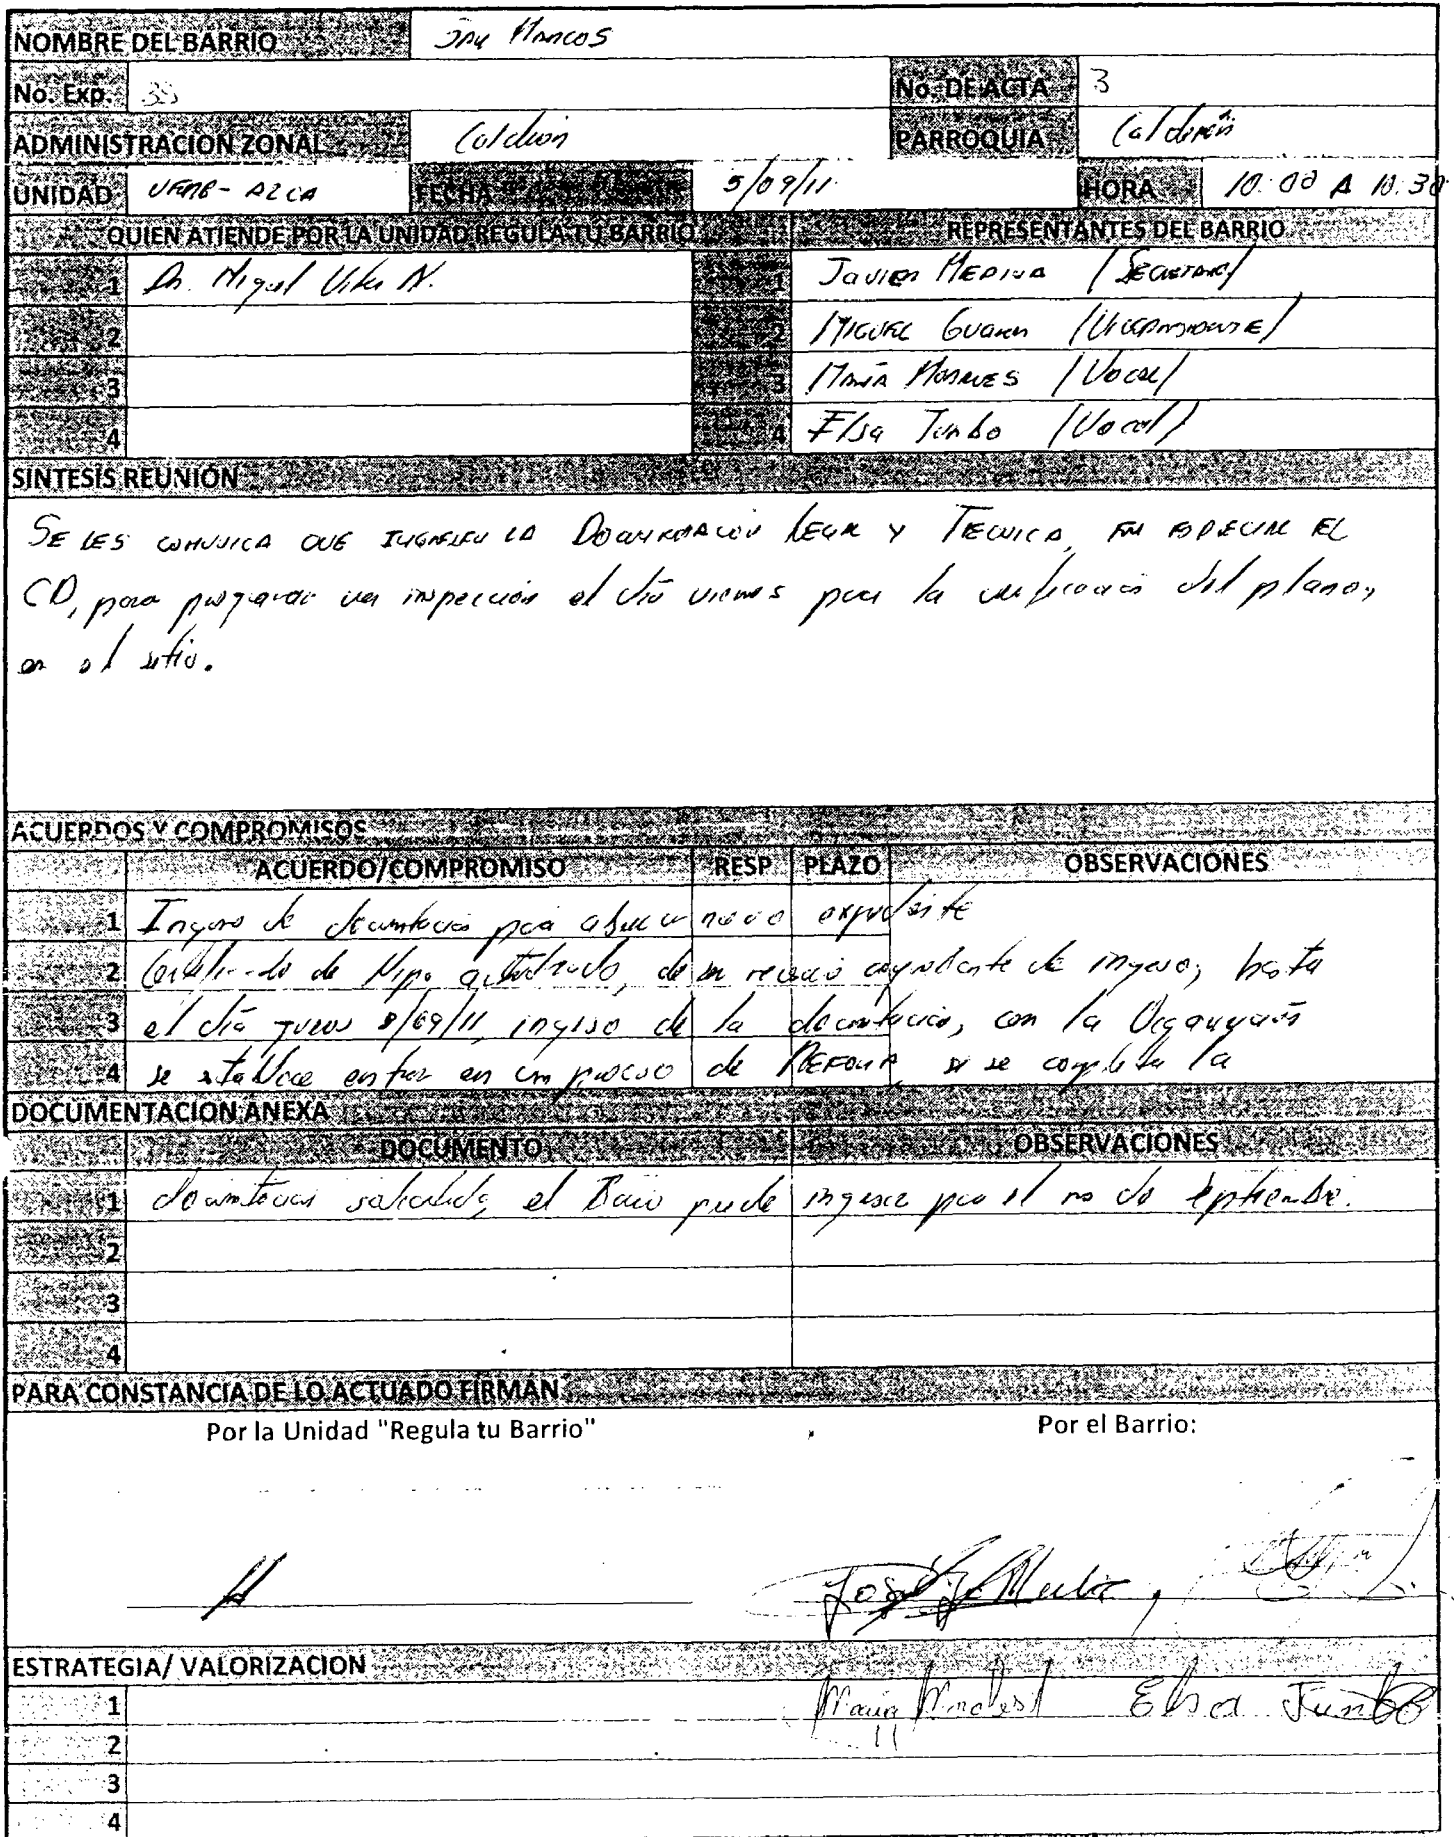 NOMBRE DEL BARRIO San Marcos
No. Exp. 39 No. DE ACTA 3
ADMINISTRACION ZONAL Calderón PARROQUIA Calderón
UNIDAD AZCA FECHA 5/09/11 HORA 10:00 A 10:30
QUIEN ATIENDE POR LA UNIDAD REGULA TU BARRIO REPRESENTANTES DEL BARRIO
1 Dr. Miguel N. 1 Javier Medina (Secretario)
2 2 Miguel (Vicepresidente)
3 3 María Morales (Vocal)
4 4 Elsa Jumbo (Vocal)
SINTESIS REUNIÓN
SE LES COMUNICA QUE INGRESEN LA DOCUMENTACIÓN LEGAL Y TECNICA, EN ESPECIAL EL
CD, para programar una inspección el día viernes para la verificación del plano,
en el sitio.
ACUERDOS Y COMPROMISOS
ACUERDO/COMPROMISO RESP PLAZO OBSERVACIONES
1 Ingreso de documentación para nuevo expediente
2 Certificado de de ingreso, hasta
3 el día jueves 8/09/11, ingreso de la documentación, con la
4 se establece entrar en un proceso de si se completa la
DOCUMENTACION ANEXA
DOCUMENTO OBSERVACIONES
1 documentación solicitada, el Barrio puede ingresar para el mes de septiembre.
2
3
4
PARA CONSTANCIA DE LO ACTUADO FIRMAN
Por la Unidad "Regula tu Barrio" Por el Barrio:
María Morales Elsa Jumbo
ESTRATEGIA/ VALORIZACION
1
2
3
4